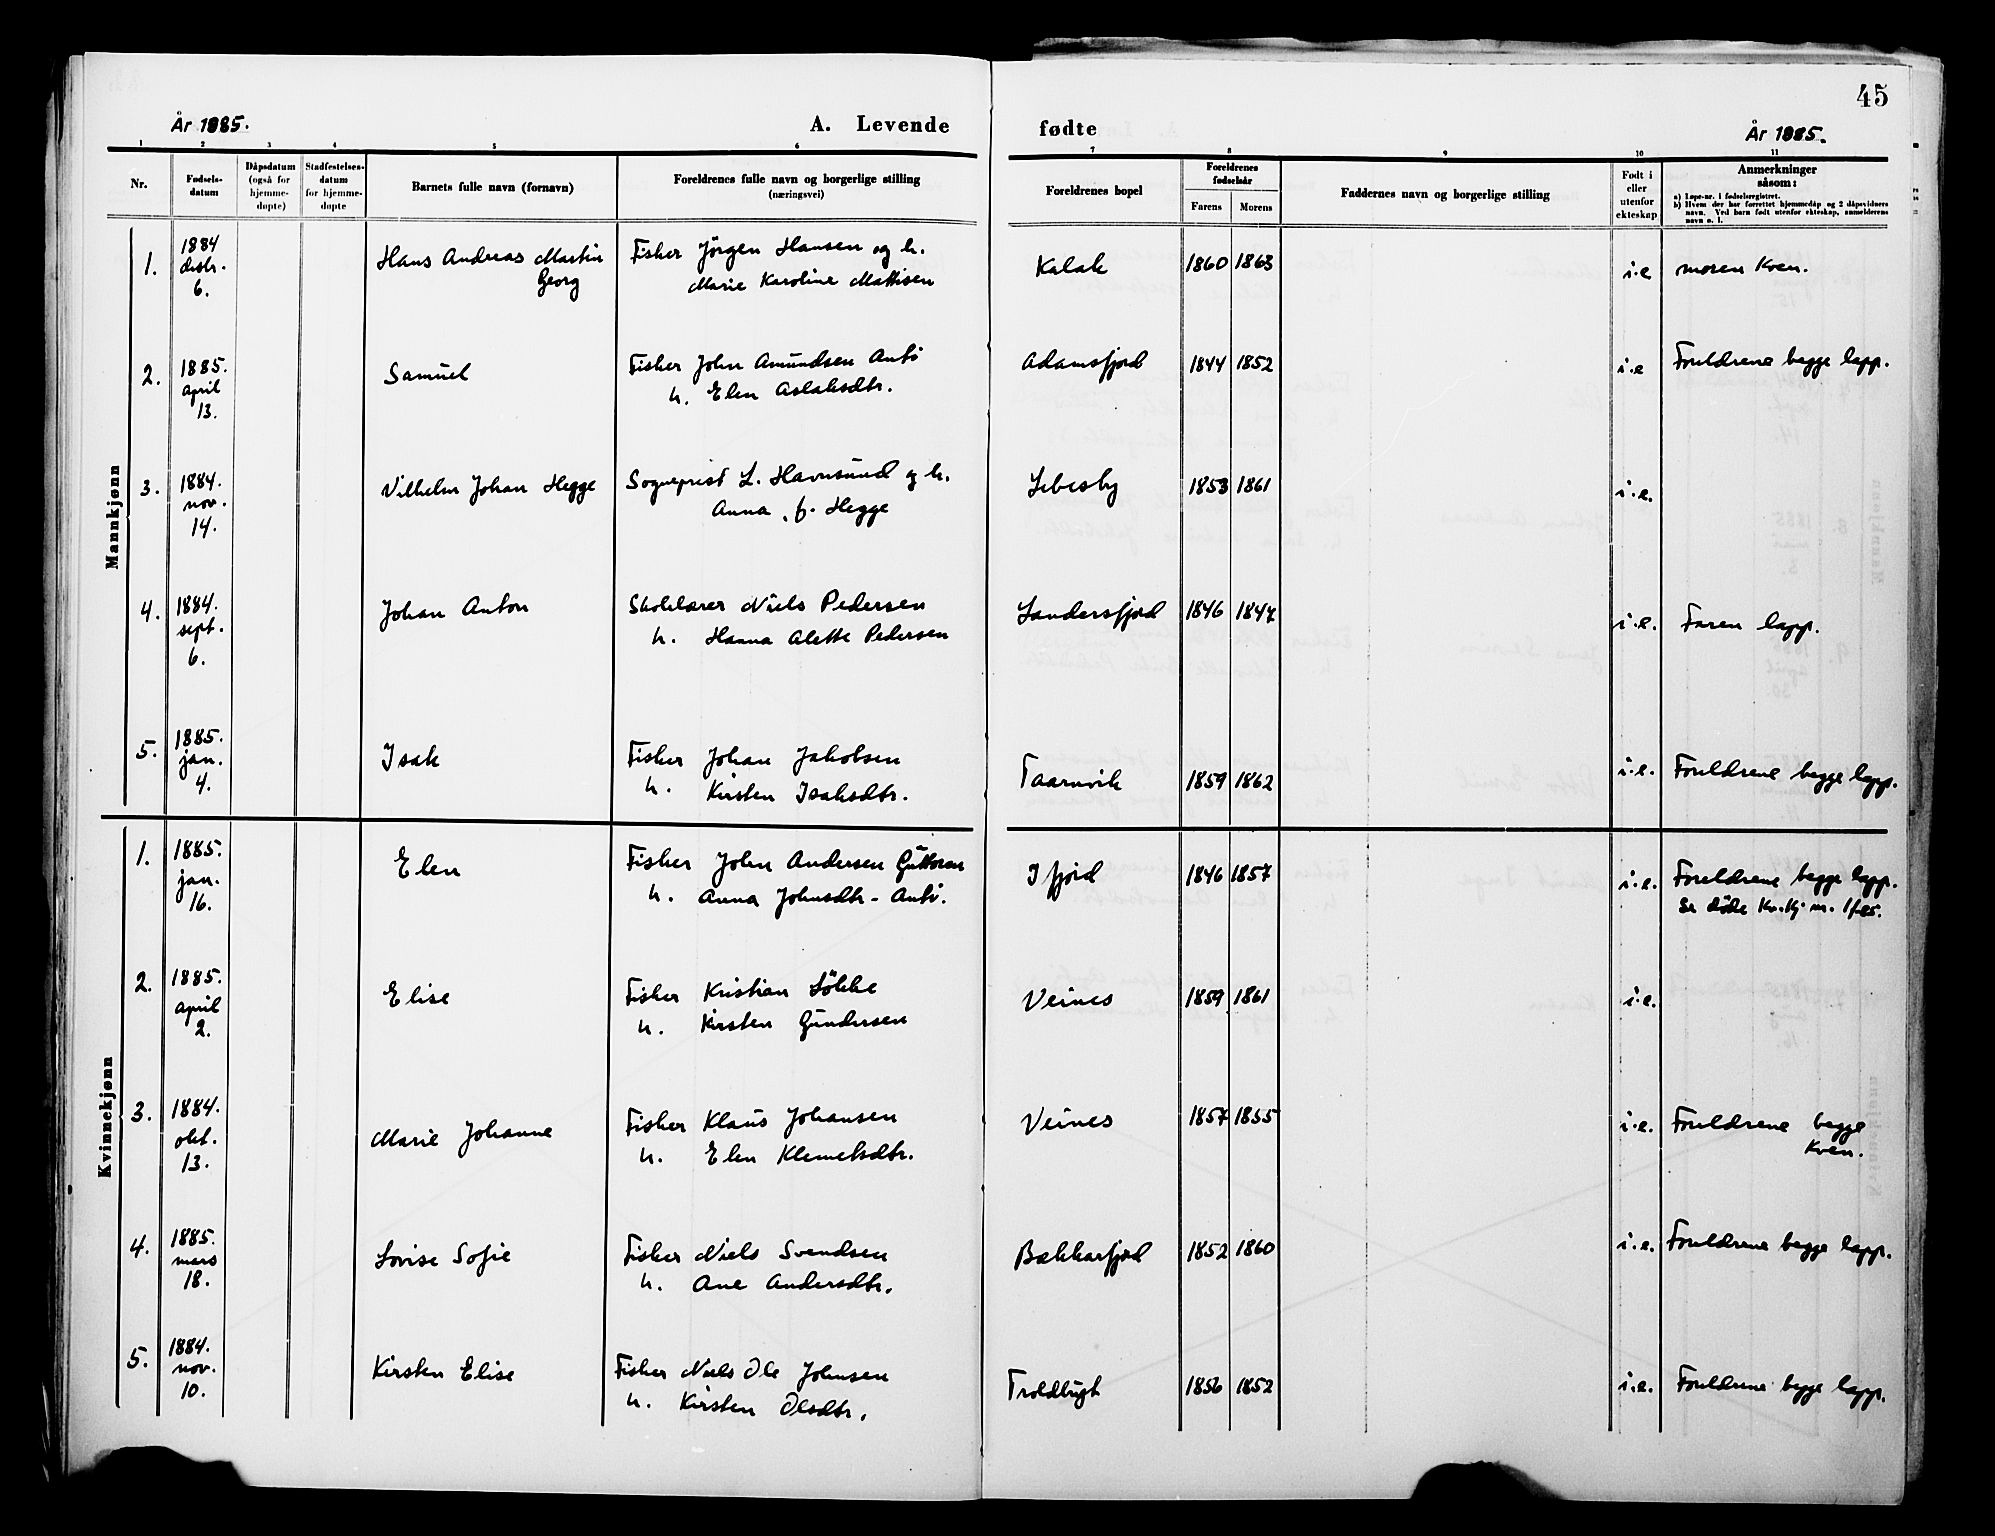 45
År 1885.
A. Levende
fødte
År 1885.
1 2 3 4 5 6 7 8 9 10 11
Nr.
Fødsels-
datum
Dåpsdatum
(også for
hjemme-
døpte)
Stadfestelses-
datum
for hjemme-
døpte
Barnets fulle navn (fornavn)
Foreldrenes fulle navn og borgerlige stilling
(næringsvei)
Foreldrenes bopel
Foreldrenes
fødselsår
Farens Morens
Faddernes navn og borgerlige stilling
Født i
eller
utenfor
ekteskap
Anmerkninger
såsom:
a) Løpe-nr. i fødselsregistret.
b) Hvem der har forrettet hjemmedåp og 2 dåpsvidners
navn. Ved barn født utenfor ekteskap, anmelderens
navn o. l.
Mannkjønn
1. 1884 desbr. 6. Hans Andreas Martin Georg Fisker Jörgen Hansen og h. Kalak 1860 1863 i.e moren Kven.
Marie Karoline Mathisen
2. 1885. april 13. Samuel Fisker John Amundsen Anti Adamsfjord 1844 1852 i.e Foreldrene begge lapp.
h. Elen Aslaksdtr.
3. 1884. nov. 14. Vilhelm Johan Hegge Sogneprest L. Havnsund og h. Lebesby 1853 1861 i.e.
Anna, f. Hegge
4. 1884. sept. 6. Johan Anton Skolelærer Niels Pedersen Landersfjord 1846 1847 i.e. Faren lapp.
h. Hanna Alette Pedersen
5. 1885. jan. 4. Isak Fisker Johan Jakobsen Taarnvik 1859 1862 i.e. Foreldrene begge lapp.
h. Kirsten Isaksdtr.
Kvinnekjønn
1. 1885. jan. 16. Elen Fisker John Andersen Guttorm Ifjord 1846 1857 i.e. Foreldrene begge lapp.
h. Anna Johnsdtr - Anti. Se döde Kv.kj nr. 1/85.
2. 1885. april 2. Elise Fisker Kristian Lökke Veines 1859 1861 i.e.
h. Kirsten Gundersen
3. 1884. okt. 13. Marie Johanne Fisker Klaus Johansen Veines 1857 1855 i.e. Foreldrene begge
h. Elen Klemetsdtr. Kven.
4. 1885. mars 18. Lovise Sofie Fisker Niels Svendsen Bekkarfjord 1852 1860 i.e. Foreldrene begge lapp.
h. Ane Andersdtr.
5. 1884. nov. 10. Kirsten Elise Fisker Niels Ole Johnsen Troldbugt 1856 1852 i.e. Foreldrene begge lapp.
h. Kirsten Olsdtr.